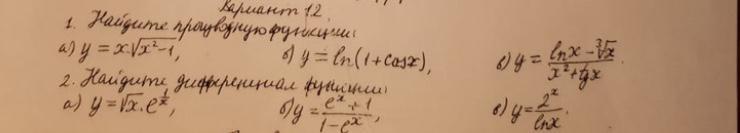 Вариант 12.
1. Найдите производную функции:
а) y = x·√(x²-1), б) y = ln(1+cosx), в) y = (lnx - ∛x)/(x²+tgx).
2. Найдите дифференциал функции:
а) y = √x·e^(1/x), б) y = (e^x+1)/(1-e^x), в) y = 2^x/lnx.